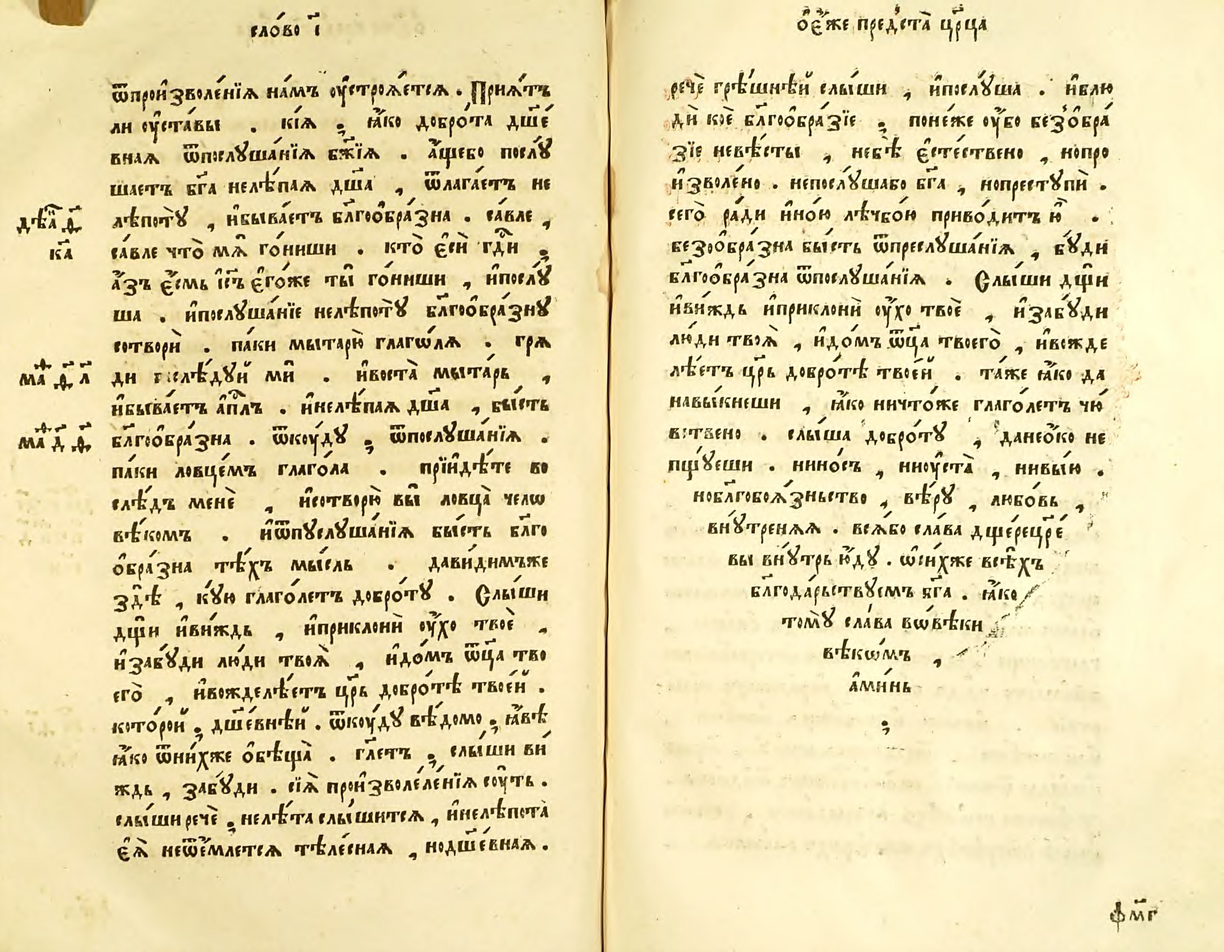 сло́во і҃
ѿпроизволе́нїѧ на́мъ оустроѧ́етсѧ . Прїѧ́тъ
ли оуста́вы . кі́ѧ ; ꙗ҆́ко добро́та дш҃е́
внаѧ ѿпослꙋша́нїѧ бж҃їѧ . а҆́щебо послꙋ́
шаетъ бг҃а нелѣ́паѧ дш҃а̀ , ѿлага́етъ не
лѣ́потꙋ̀ , и҆быва́етъ бл҃гоѡбра́зна . са́вле ,
дѣѧ҃ ѳ҃
са́вле что̀ мѧ̀ го́ниши . кто̀ є҆сѝ гд҃и ;
к҃а
а҆́зъ є҆́смь і҆с҃ъ є҆го́же ты̀ го́ниши , и҆послꙋ́
ша . и҆послꙋша́нїе нелѣ́потꙋ̀ бл҃гоѡбра́знꙋ
сотворѝ . па́ки мытарю̀ глаго́лѧ . грѧ
дѝ послѣ́дꙋй мѝ . и҆воста̀ мыта́рь ,
ма҃ ѳ҃ л҃
и҆быва́етъ а҆пⷭ҇лъ . и҆нелѣ́паѧ дш҃а̀ , бы́сть
бл҃гоѡбра́зна . ѿкоу́дꙋ ; ѿпослꙋша́нїѧ .
ма҃ д҃ ѳ҃
па́ки ловце́мъ глаго́ла . прїидѣ́те во
слѣ́дъ менѐ , и҆сотворю̀ вы̀ ловца̀ чело
вѣ́комъ . и҆ѿпуслꙋша́нїѧ бы́сть бл҃го
ѡбра́зна тѣ́хъ мы́сль . дави́димъже
здѣ̀ , кꙋ́ю глаго́летъ добро́тꙋ . Слы́ши
дщ҃и и҆ви́ждь , и҆приклонѝ оу҆́хо твоѐ ,
и҆забꙋ́ди лю́ди твоѧ̀ , и҆до́мъ ѿц҃а тво
его̀ , и҆вожделѣ́етъ цр҃ь добро́тѣ твое́й .
кото́рой ; дш҃е́внѣй . ѿкоу́дꙋ вѣ́домо ; ꙗ҆́вѣ
ꙗ҆́ко ѿни́хже ѻ҆бѣща̀ . гл҃етъ ; слы́ши ви́
ждь , забꙋ́ди . сїѧ̀ произволеле́нїѧ соу́ть .
слы́ши речѐ ; нелѣ́та слы́шитсѧ , и҆нелѣ́пота
є҆ѧ̀ неѿе́млетсѧ тѣле́снаѧ , нодш҃е́внаѧ .
ѻ҆є҆́же предста̀ цр҃ца
речѐ грѣ́шнѣй слы́ши , и҆послꙋ́ша . и҆блю
дѝ коѐ бл҃гоѡбра́зїе ; поне́же оу҆́бо безѡбра́
зїе невѣ́сты , небѣ̀ є҆сте́ствено , нопро
и҆зволе́но . непослꙋ́шабо бг҃а , нопрестꙋпѝ .
сего̀ ра́ди и҆но́ю лѣчбо́ю приво́дитъ ю̀ .
безѡбра́зна бы́сть ѿпреслꙋша́нїѧ , бꙋ́ди
бл҃гоѡбра́зна ѿпослꙋша́нїѧ . Слы́ши дщ҃и
и҆ви́ждь и҆приклонѝ оу҆́хо твоѐ , и҆забꙋ́ди
лю́ди твоѧ̀ , и҆до́мъ ѿц҃а твоего̀ , и҆вожде
лѣ́етъ цр҃ь добро́тѣ твое́й . та́же ꙗ҆́ко да
навы́кнеши , ꙗ҆́ко ничто́же глаго́летъ чю́
вствено . слы́ша добро́тꙋ , данео́ко не
пщꙋ́еши . нино́съ , ниоуста̀ , нивы́ю .
ноблгобоѧ́зньство , вѣ́рꙋ , любо́вь ,
внꙋ́тренѧѧ . всѧ́бо сла́ва дще́рецр҃е́
вы внꙋ́трь и҆́дꙋ . ѡ҆ни́хже всѣ́хъ
бл҃года́рьствꙋемъ бг҃а . ꙗ҆́ко
томꙋ̀ сла́ва вовѣ́ки
вѣ́комъ ,
а҆ми́нь
;
ф҃мг